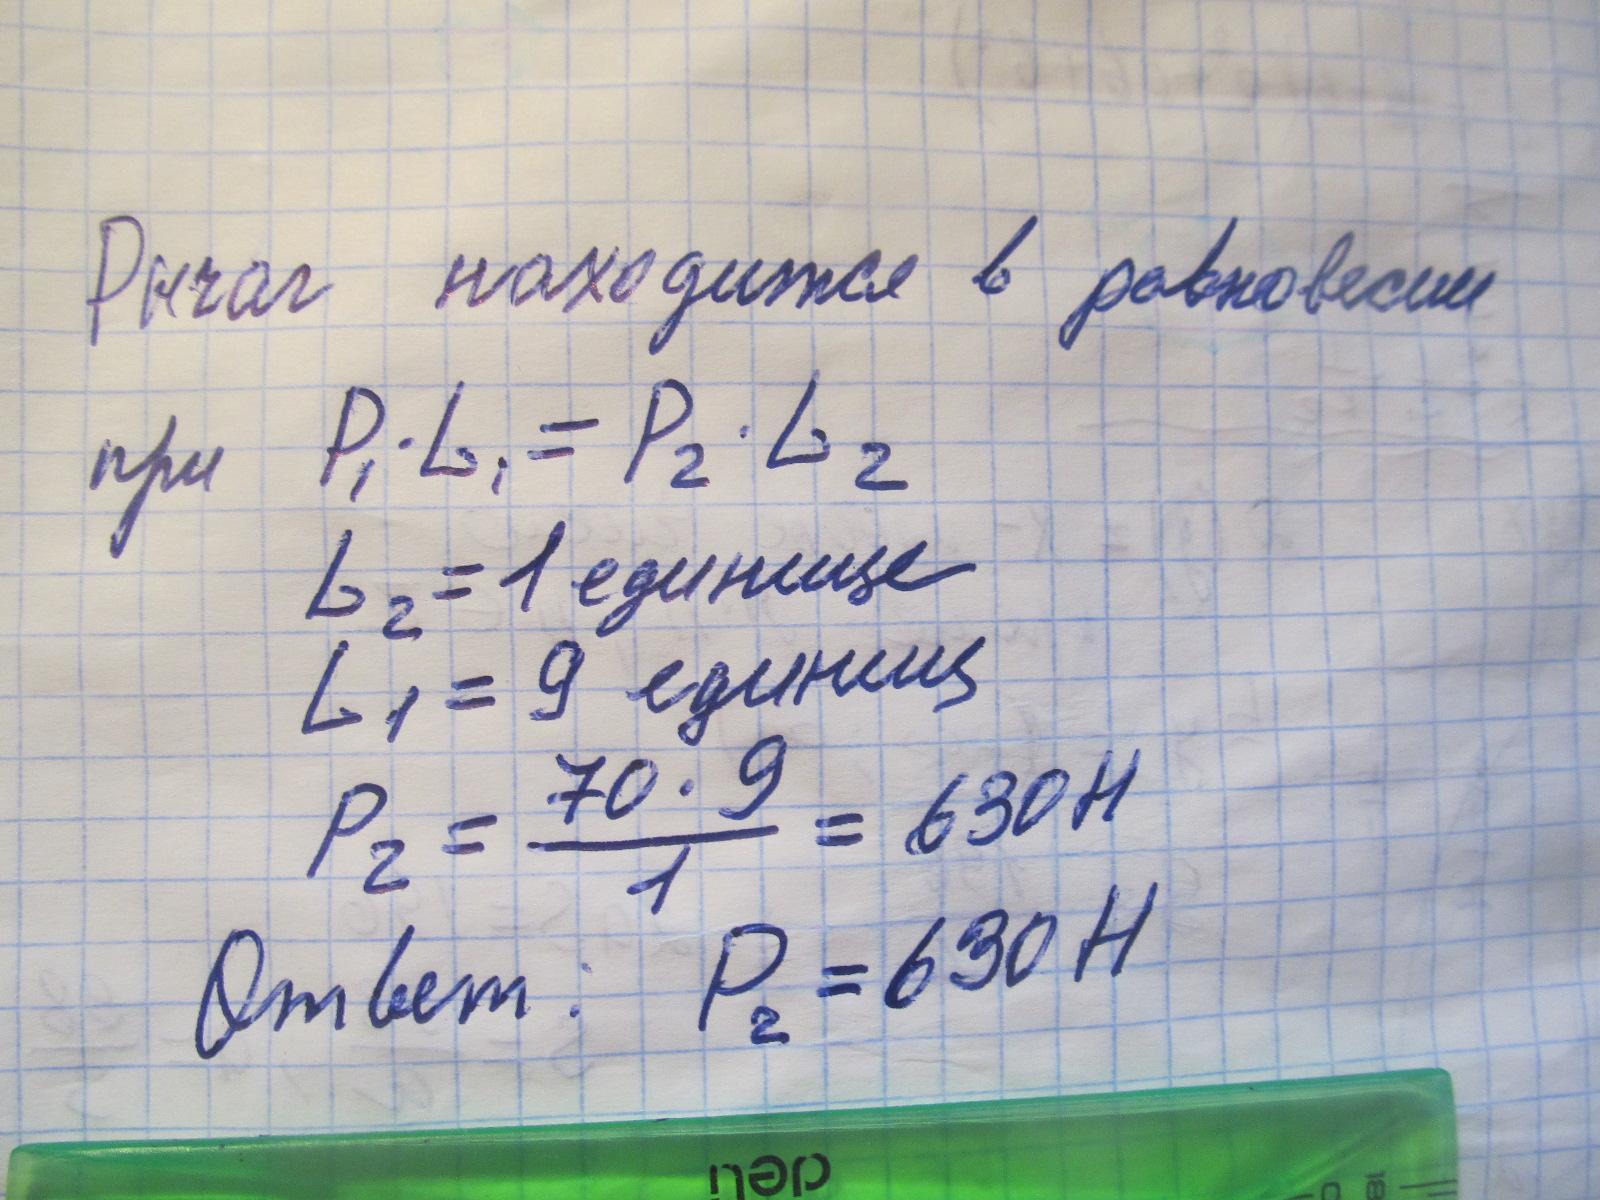 Рычаг находится в равновесии
при P₁·L₁ = P₂·L₂
L₂ = 1 единице
L₁ = 9 единиц
P₂ = 70·9/1 = 630 Н
Ответ: P₂ = 630 Н
deli